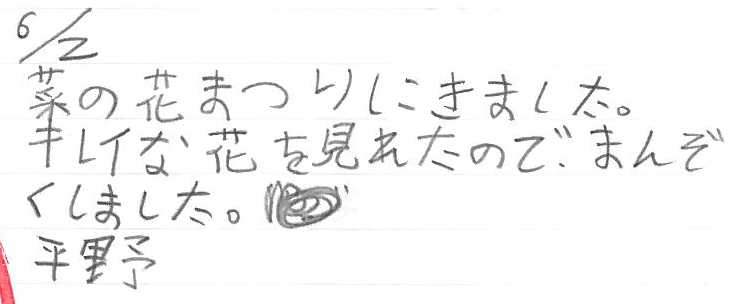 6/2
菜の花まつりにきました。
キレイな花を見れたので、まんぞ
くしました。
平野